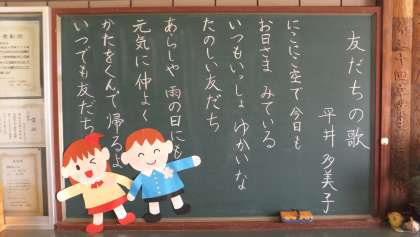 友だちの歌
平井 多美子
にこにこ空で 今日も
お日さま みている
いつもいっしょ ゆかいな
たのしい友だち
あらしや 雨の日にも
元気に仲よく
かたをくんで 帰るよ
いつでも友だち